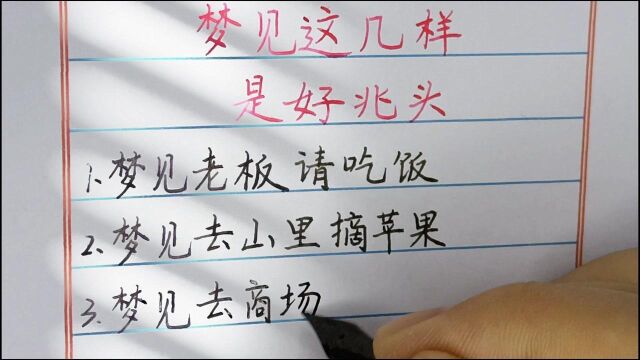 梦见这几样
是好兆头
1、梦见老板请吃饭
2、梦见去山里摘苹果
3、梦见去商场